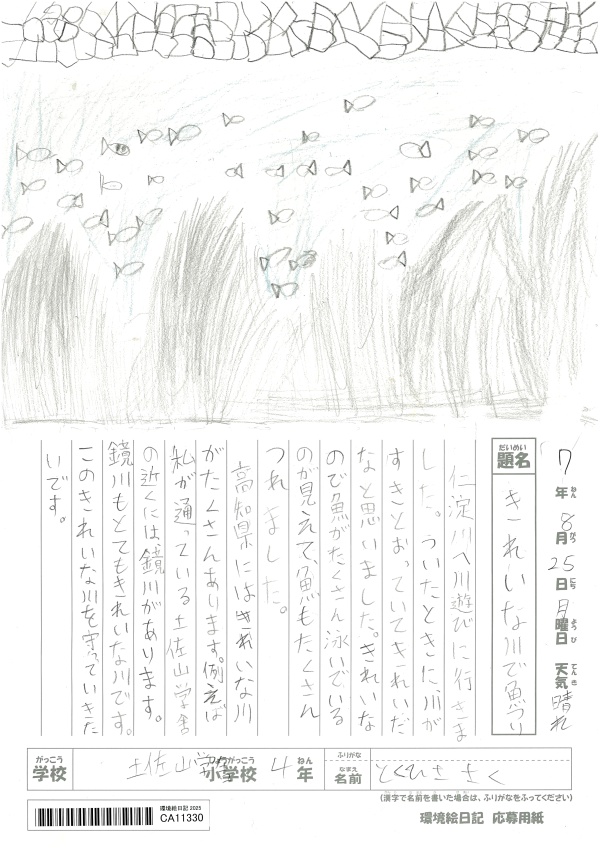 7年8月25日月曜日 天気晴れ
ねん がつ にち ようび てんき
だいめい
題名 きれいな川で魚つり
仁淀川へ川遊びに行きま
した。ついたときに、川が
すきとおっていてきれいだ
なと思いました。きれいな
ので魚がたくさん泳いでいる
のが見えて、魚もたくさん
つれました。
高知県にはきれいな川
がたくさんあります。例えば
私が通っている土佐山学舎
の近くには、鏡川があります。
鏡川もとてもきれいな川です。
このきれいな川を守っていきた
いです。
がっこう
学校 土佐山学舎 小学校 4年
しょうがっこう ねん
ふりがな
なまえ
名前 とくひさ さく
(漢字で名前を書いた場合は、ふりがなをふってください)
環境絵日記 応募用紙
環境絵日記 2025
CA11330